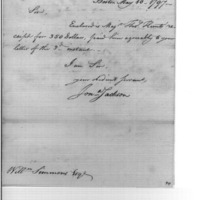 Boston May 10. 1797.
Sir,
Enclosed is Majr Thos Hunts re-
ceipt for 350 Dollars paid him agreeably to your
letter of the 3d instant.
I am Sir,
your Obedient Servant,
Jona Jackson
Willm Simmons Esqr